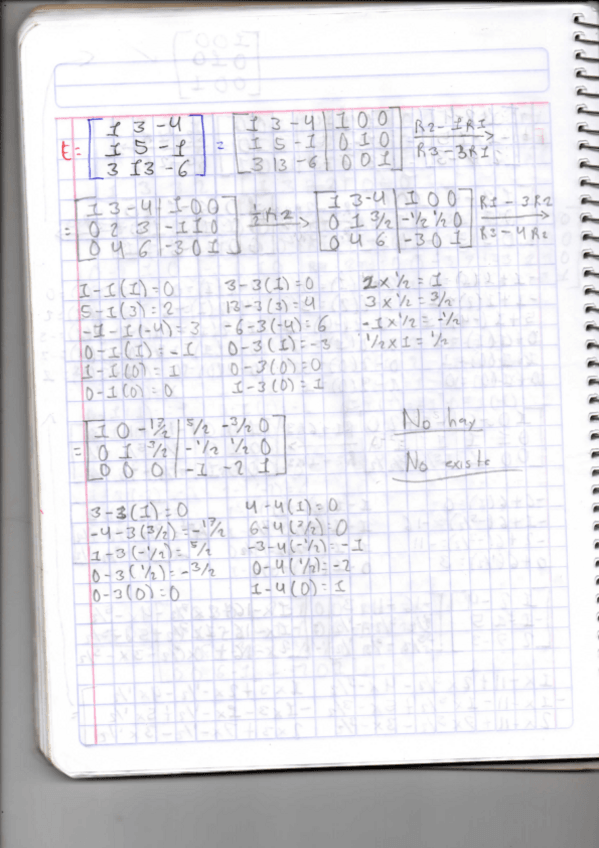 E = [1 3 -4 | 1 5 -1 | 3 13 -6] =
1 3 -4 | 1 0 0
1 5 -1 | 0 1 0
3 13 -6 | 0 0 1
R2 - 1R1
R3 - 3R1
=
1 3 -4 | 1 0 0
0 2 3 | -1 1 0
0 4 6 | -3 0 1
1/2 R2
1 3 -4 | 1 0 0
0 1 3/2 | -1/2 1/2 0
0 4 6 | -3 0 1
R1 - 3R2
R3 - 4R2
1-1(1)=0 3-3(1)=0 2x1/2=1
5-1(3)=2 13-3(3)=4 3x1/2=3/2
-1-1(-4)=3 -6-3(-4)=6 -1x1/2=-1/2
0-1(1)=-1 0-3(1)=-3 1/2x1=1/2
1-1(0)=1 0-3(0)=0
0-1(0)=0 1-3(0)=1
=
1 0 -17/2 | 5/2 -3/2 0
0 1 3/2 | -1/2 1/2 0
0 0 0 | -1 -2 1
No hay
No existe
3-3(1)=0 4-4(1)=0
-4-3(3/2)=-17/2 6-4(3/2)=0
1-3(-1/2)=5/2 -3-4(-1/2)=-1
0-3(1/2)=-3/2 0-4(1/2)=-2
0-3(0)=0 1-4(0)=1